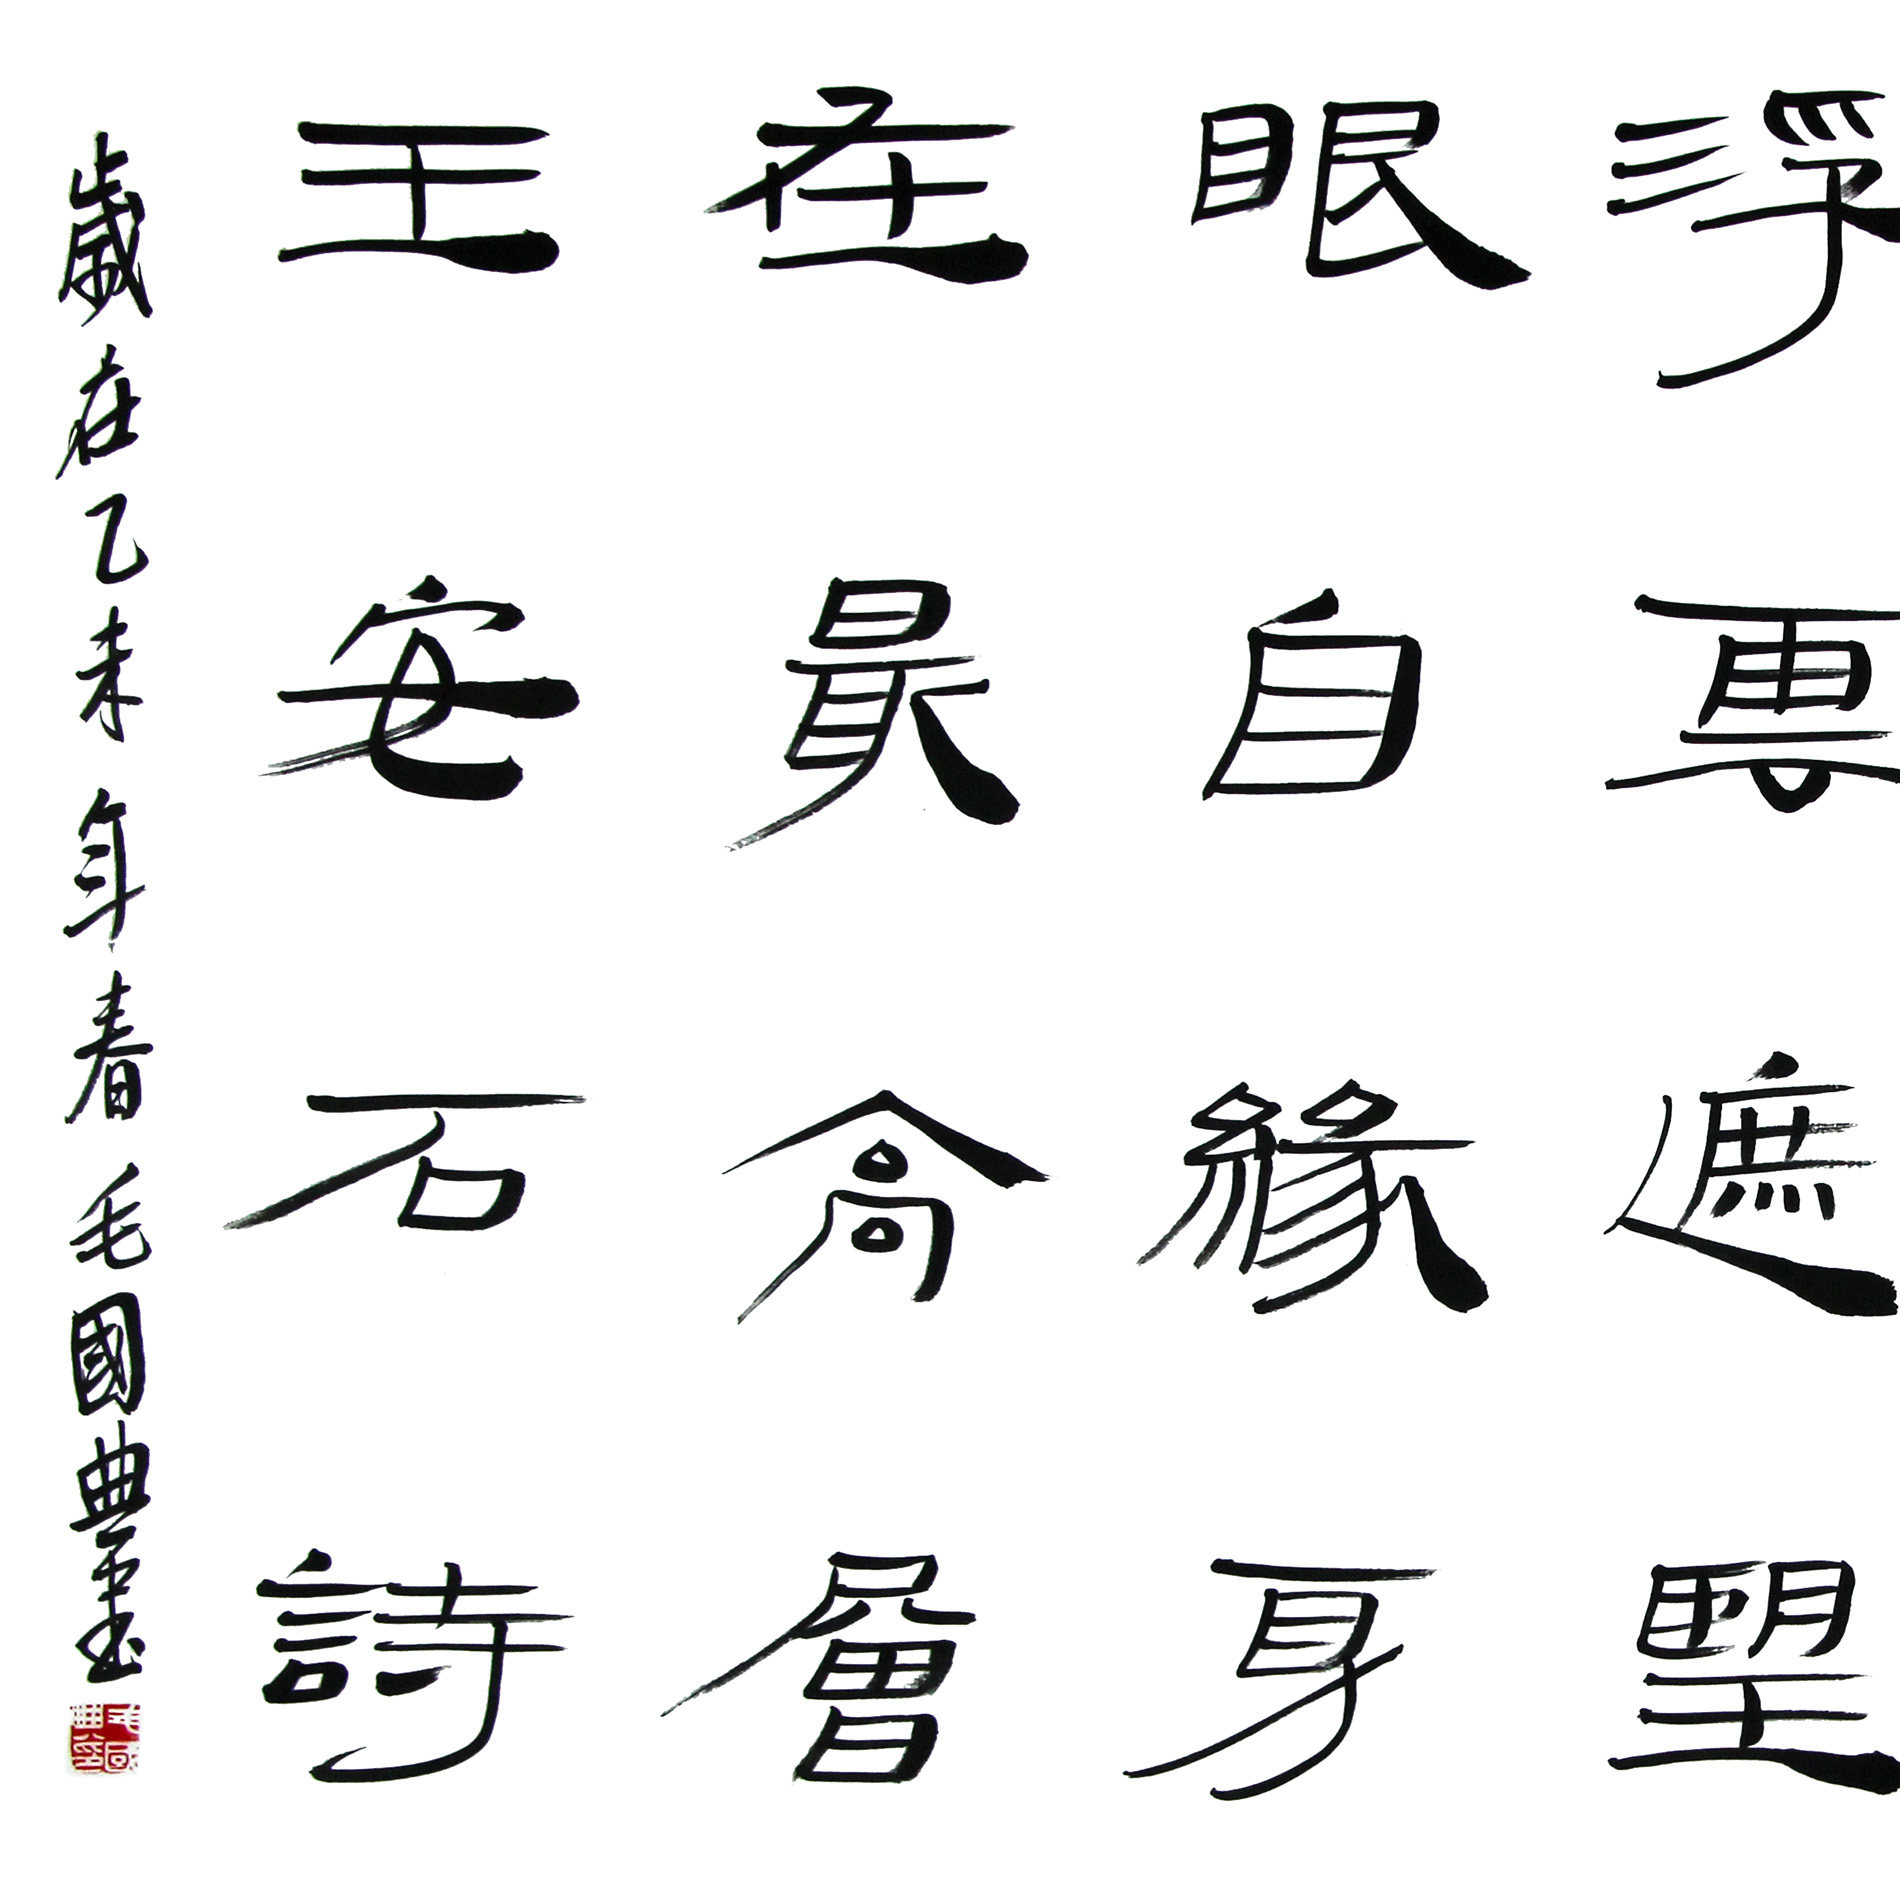 浮雲遮望
眼自緣身
在最高層
王安石詩
歲在乙未年春毛國典